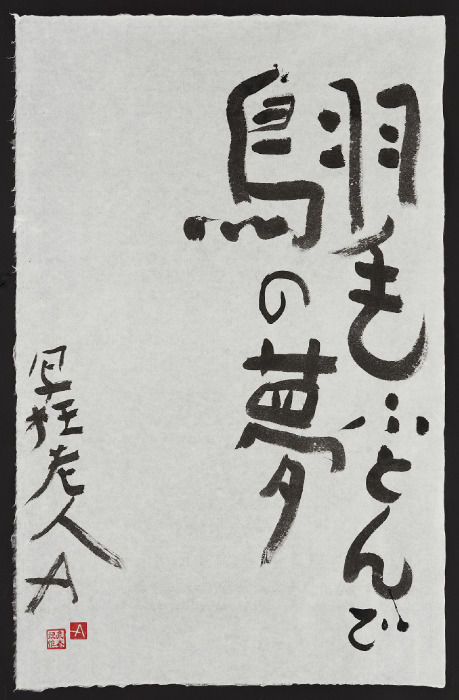 羽毛ふとんで
鳥の夢
写狂老人A
A